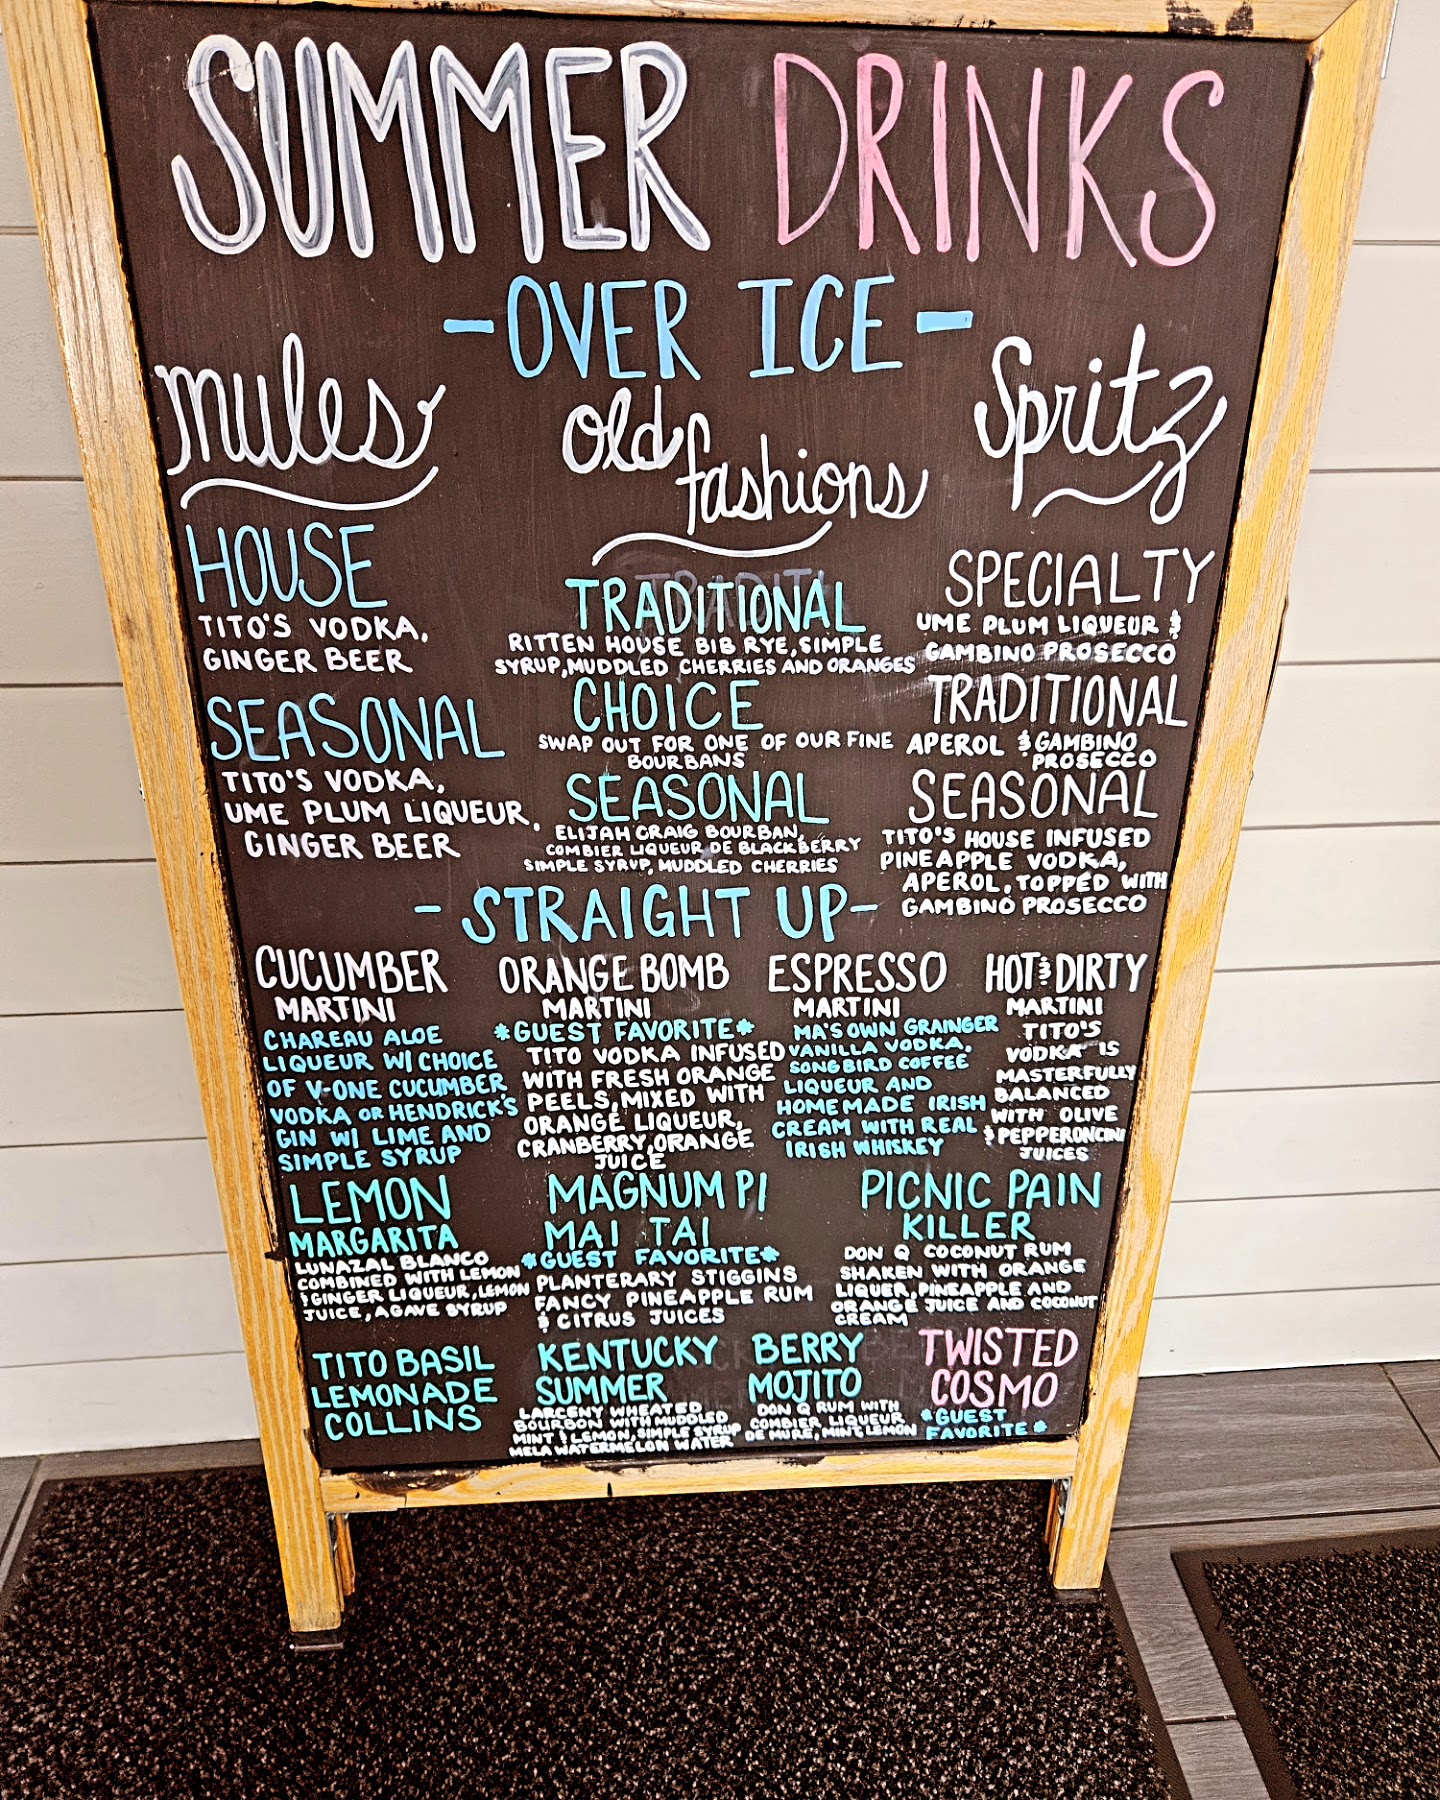 SUMMER DRINKS
-OVER ICE-
mules
HOUSE
TITO'S VODKA,
GINGER BEER
SEASONAL
TITO'S VODKA,
UME PLUM LIQUEUR,
GINGER BEER
old
fashions
TRADITIONAL
RITTEN HOUSE BIB RYE, SIMPLE
SYRUP, MUDDLED CHERRIES AND ORANGES
CHOICE
SWAP OUT FOR ONE OF OUR FINE
BOURBANS
SEASONAL
ELIJAH CRAIG BOURBAN,
COMBIER LIQUEUR DE BLACKBERRY
SIMPLE SYRUP, MUDDLED CHERRIES
Spritz
SPECIALTY
UME PLUM LIQUEUR &
GAMBINO PROSECCO
TRADITIONAL
APEROL & GAMBINO
PROSECCO
SEASONAL
TITO'S HOUSE INFUSED
PINEAPPLE VODKA,
APEROL, TOPPED WITH
GAMBINO PROSECCO
- STRAIGHT UP-
CUCUMBER
MARTINI
CHAREAU ALOE
LIQUEUR W/ CHOICE
OF V-ONE CUCUMBER
VODKA OR HENDRICK'S
GIN W/ LIME AND
SIMPLE SYRUP
ORANGE BOMB
MARTINI
*GUEST FAVORITE*
TITO VODKA INFUSED
WITH FRESH ORANGE
PEELS, MIXED WITH
ORANGE LIQUEUR,
CRANBERRY, ORANGE
JUICE
ESPRESSO
MARTINI
MA'S OWN GRAINGER
VANILLA VODKA,
SONGBIRD COFFEE
LIQUEUR AND
HOMEMADE IRISH
CREAM WITH REAL
IRISH WHISKEY
HOT & DIRTY
MARTINI
TITO'S
VODKA IS
MASTERFULLY
BALANCED
WITH OLIVE
& PEPPERONCINI
JUICES
LEMON
MARGARITA
LUNAZAL BLANCO
COMBINED WITH LEMON
& GINGER LIQUEUR, LEMON
JUICE, AGAVE SYRUP
MAGNUM PI
MAI TAI
*GUEST FAVORITE*
PLANTERARY STIGGINS
FANCY PINEAPPLE RUM
& CITRUS JUICES
PICNIC PAIN
KILLER
DON Q COCONUT RUM
SHAKEN WITH ORANGE
LIQUER, PINEAPPLE AND
ORANGE JUICE AND COCONUT
CREAM
TITO BASIL
LEMONADE
COLLINS
KENTUCKY
SUMMER
LARCENY WHEATED
BOURBON WITH MUDDLED
MINT & LEMON, SIMPLE SYRUP
MELA WATERMELON WATER
BERRY
MOJITO
DON Q RUM WITH
COMBIER LIQUEUR
DE MURE, MINT, LEMON
TWISTED
COSMO
*GUEST
FAVORITE*